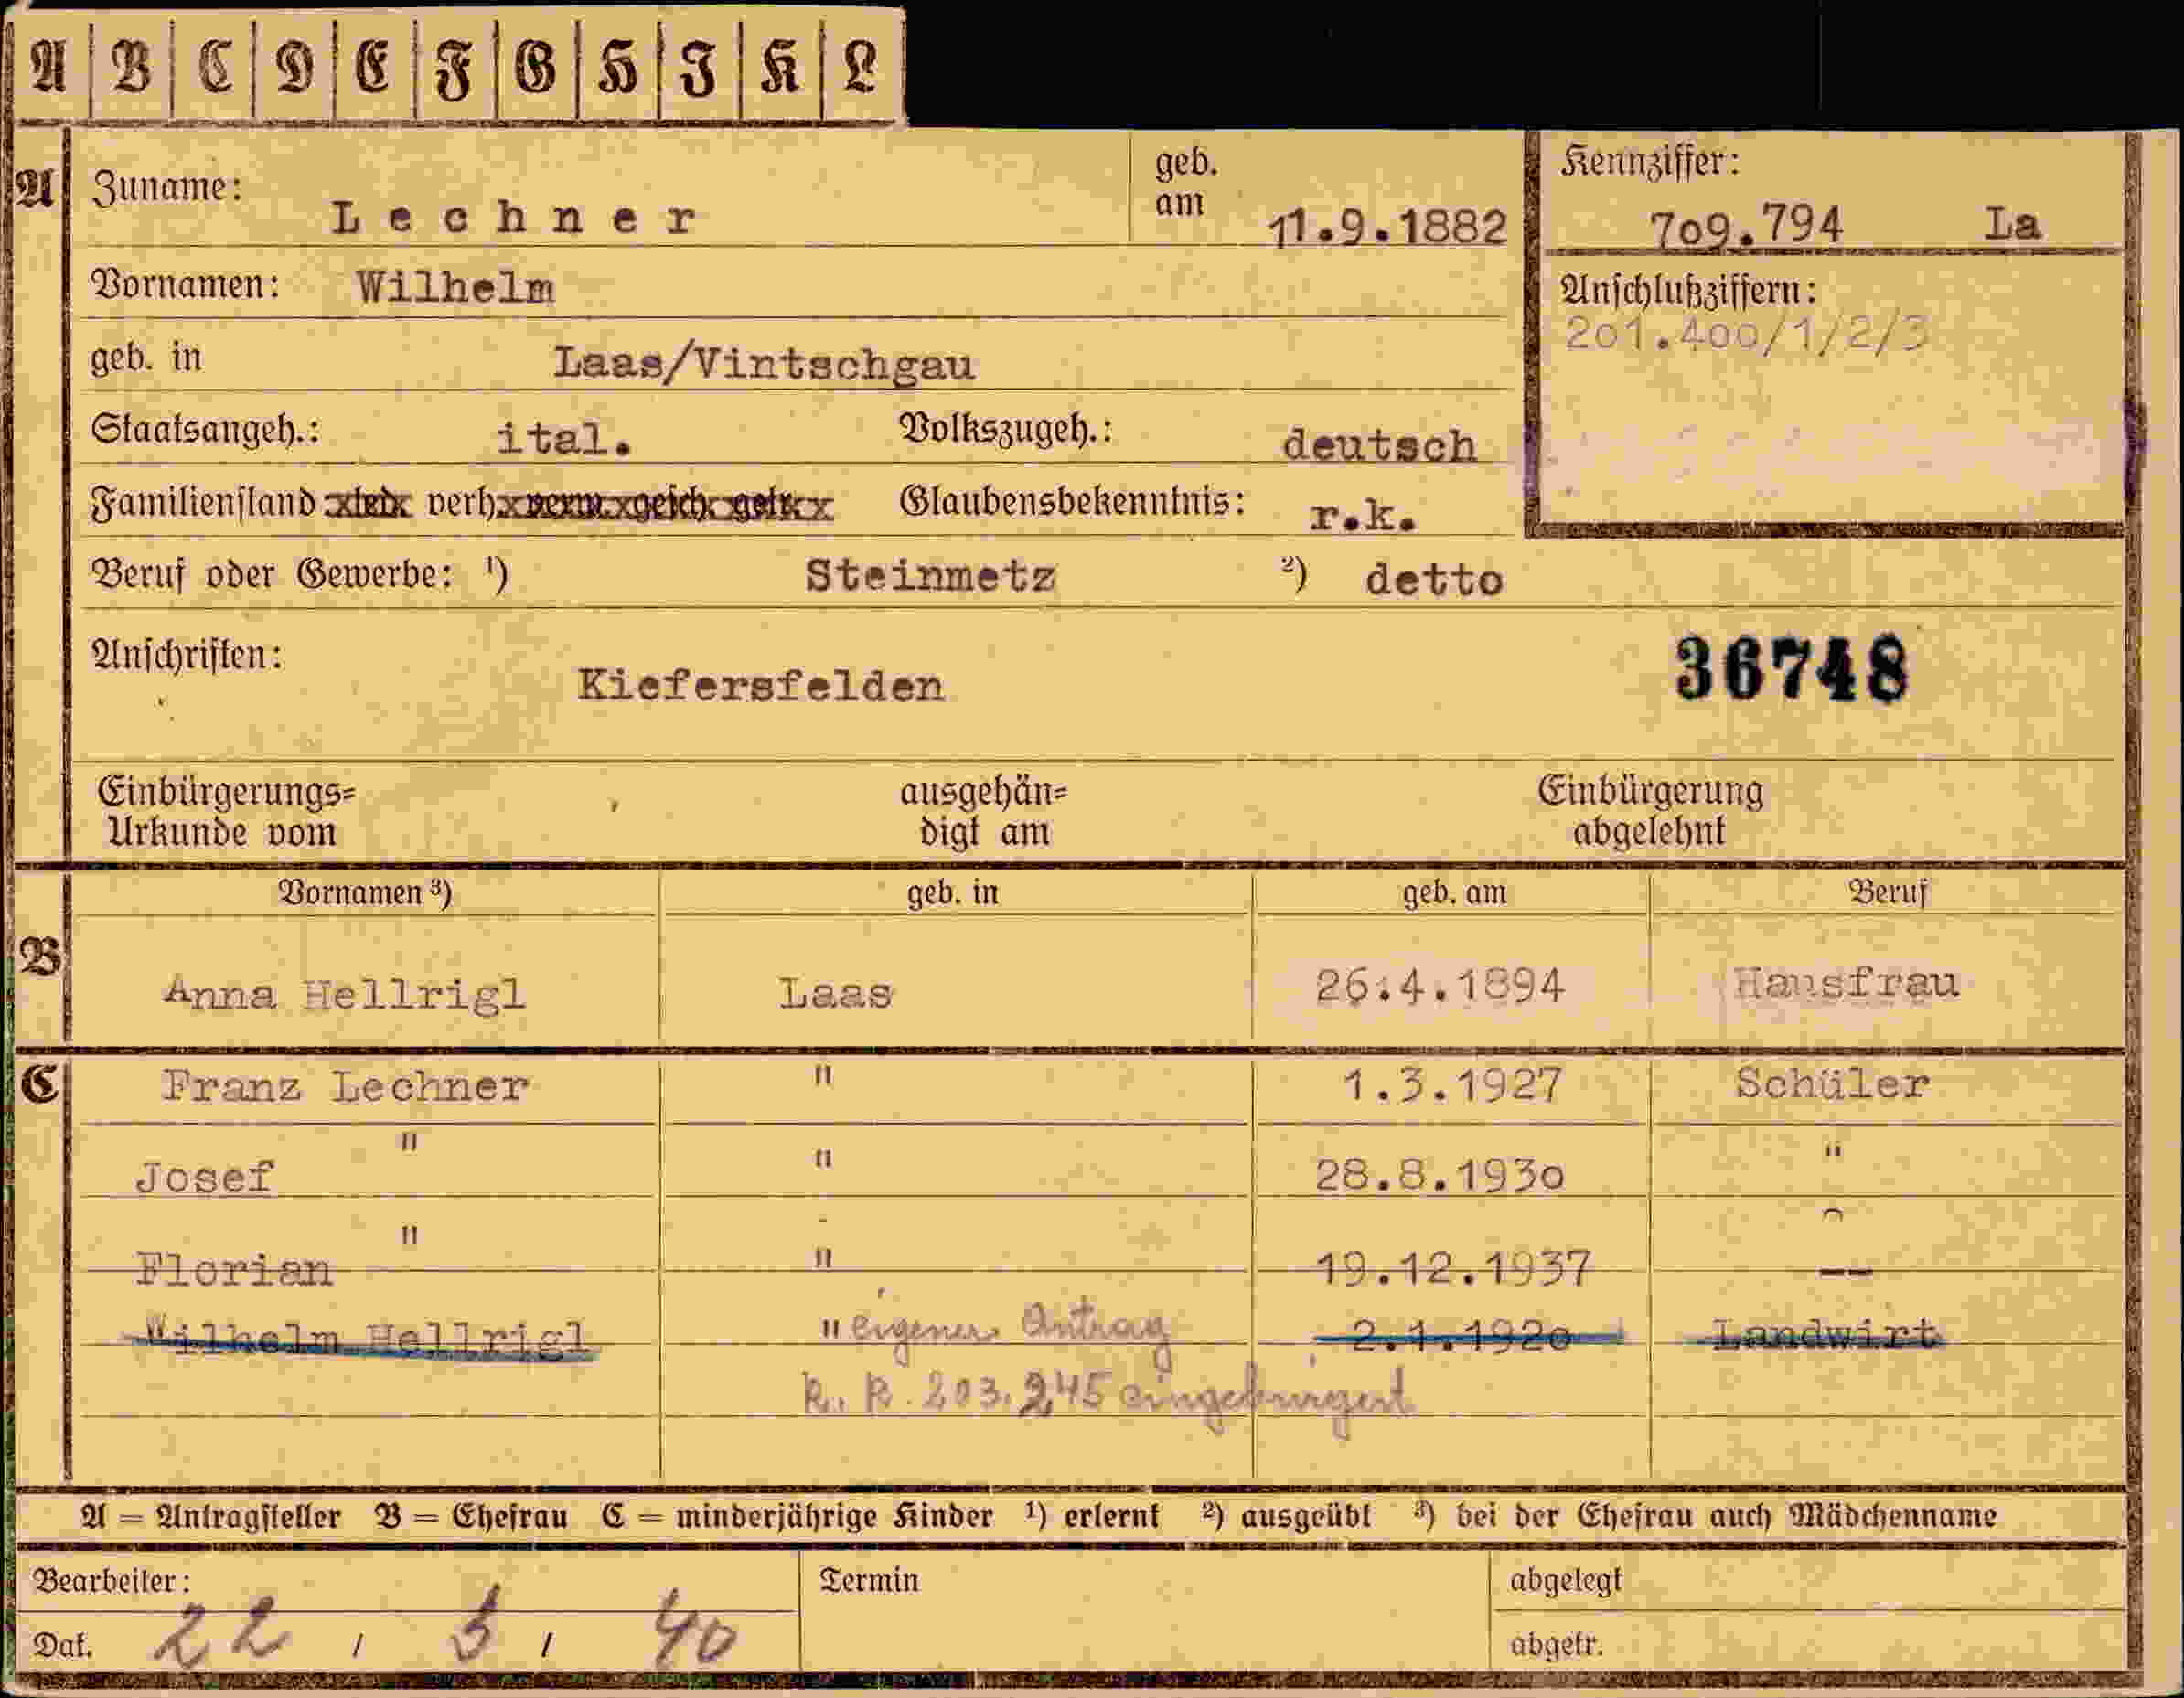 A B C D E F G H I K L
A Zuname: Lechner geb. am 11.9.1882 Kennziffer: 709.794 La
Vornamen: Wilhelm Anschlußziffern:
201.400/1/2/3
geb. in Laas/Vintschgau
Staatsangeh.: ital. Volkszugeh.: deutsch
Familienstand led. verh. verw. gesch. getr. Glaubensbekenntnis: r.k.
Beruf oder Gewerbe: ¹) Steinmetz ²) detto
Anschriften: Kiefersfelden 36748
Einbürgerungs= ausgehän= Einbürgerung
Urkunde vom digt am abgelehnt
Vornamen ³) geb. in geb. am Beruf
B Anna Hellrigl Laas 26.4.1894 Hausfrau
C Franz Lechner " 1.3.1927 Schüler
Josef " " 28.8.1930 "
Florian " " 19.12.1937 --
Wilhelm Hellrigl " eigener Antrag 2.1.1920 Landwirt
K. K. 203.245 eingebürgert
A = Antragsteller B = Ehefrau C = minderjährige Kinder ¹) erlernt ²) ausgeübt ³) bei der Ehefrau auch Mädchenname
Bearbeiter: Termin abgelegt
Dat. 22 / 3 / 40 abgetr.